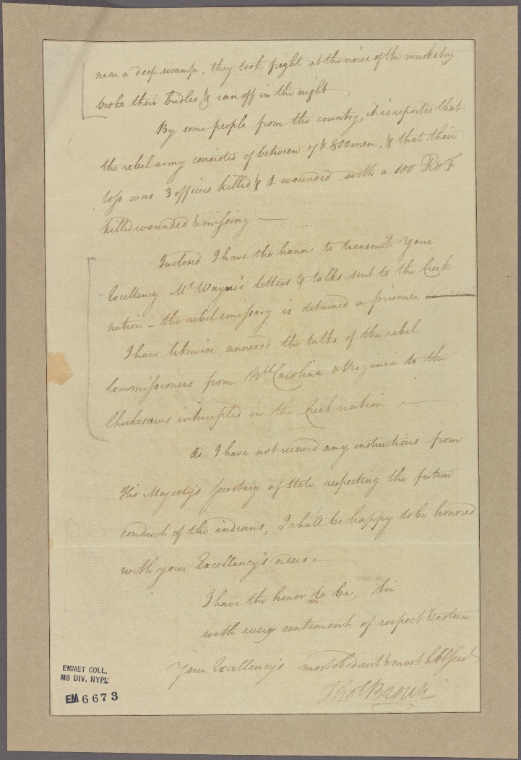 near a deep swamp, they took fright at the noise of the musketry
broke their bridles & ran off in the night
By some people from the country, it is reported that
the rebel army consisted of between 7 & 800 men, & that their
loss was 3 officers killed & 4 wounded with a 100 R & F
killed wounded & missing —
Inclosed I have the honor to transmit your
Excellency Mr Wayne's letters & talks sent to the Creek
nation — the rebel emissary is detained a prisoner —
I have likewise annexed the talks of the rebel
Commissioners from Carolina & Virginia to the
Chickesaws intercepted in the Creek nation —
As I have not received any instructions from
His Majesty's Secretary of State respecting the future
conduct of the indians, I shall be happy to be honored
with your Excellency's orders.
I have the honor to be, Sir
with every sentiment of respect & esteem
Your Excellency's most obedient & most hble Servt
Thos Brown
EMMET COLL.
MS DIV. NYPL
EM 6673